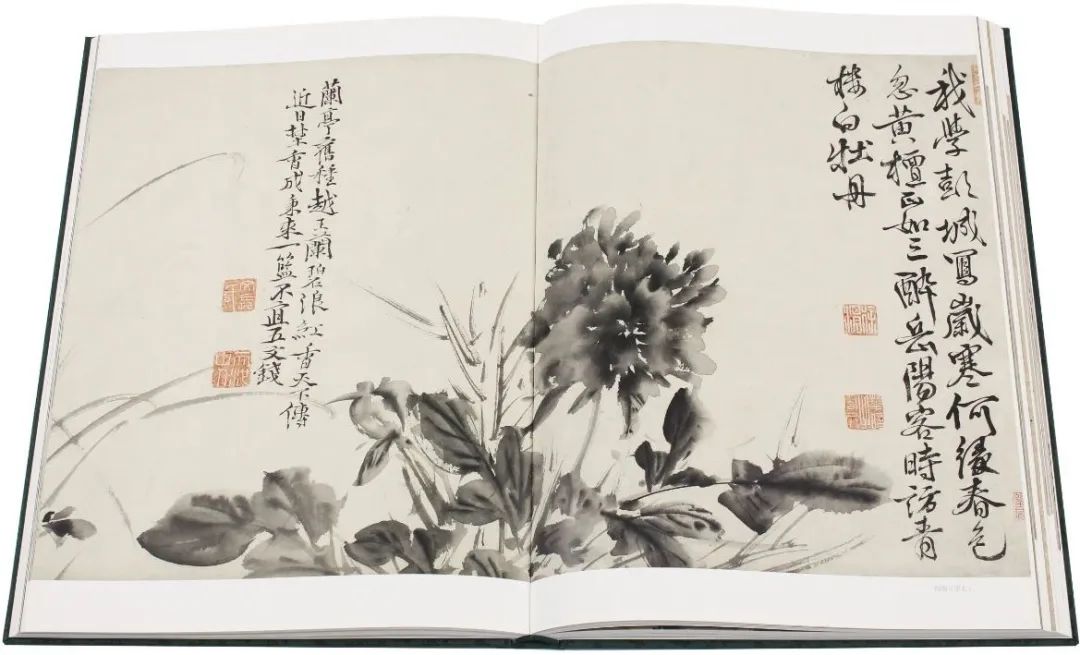 我學彭城寫歲寒何緣春色
忽黃檀正如三醉岳陽客時訪青
樓白牡丹
蘭亭舊種越王蘭碧浪紅香天下傳
近日埜香成秉束一籃不直五文錢